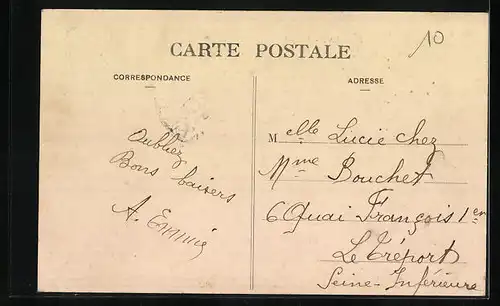 CARTE POSTALE
10
CORRESPONDANCE
ADRESSE
Oubliez
Bons baisers
A. Emmie
Melle Lucie chez
Mme Bouchet
6 Quai François 1er
Le Tréport
Seine-Inférieure